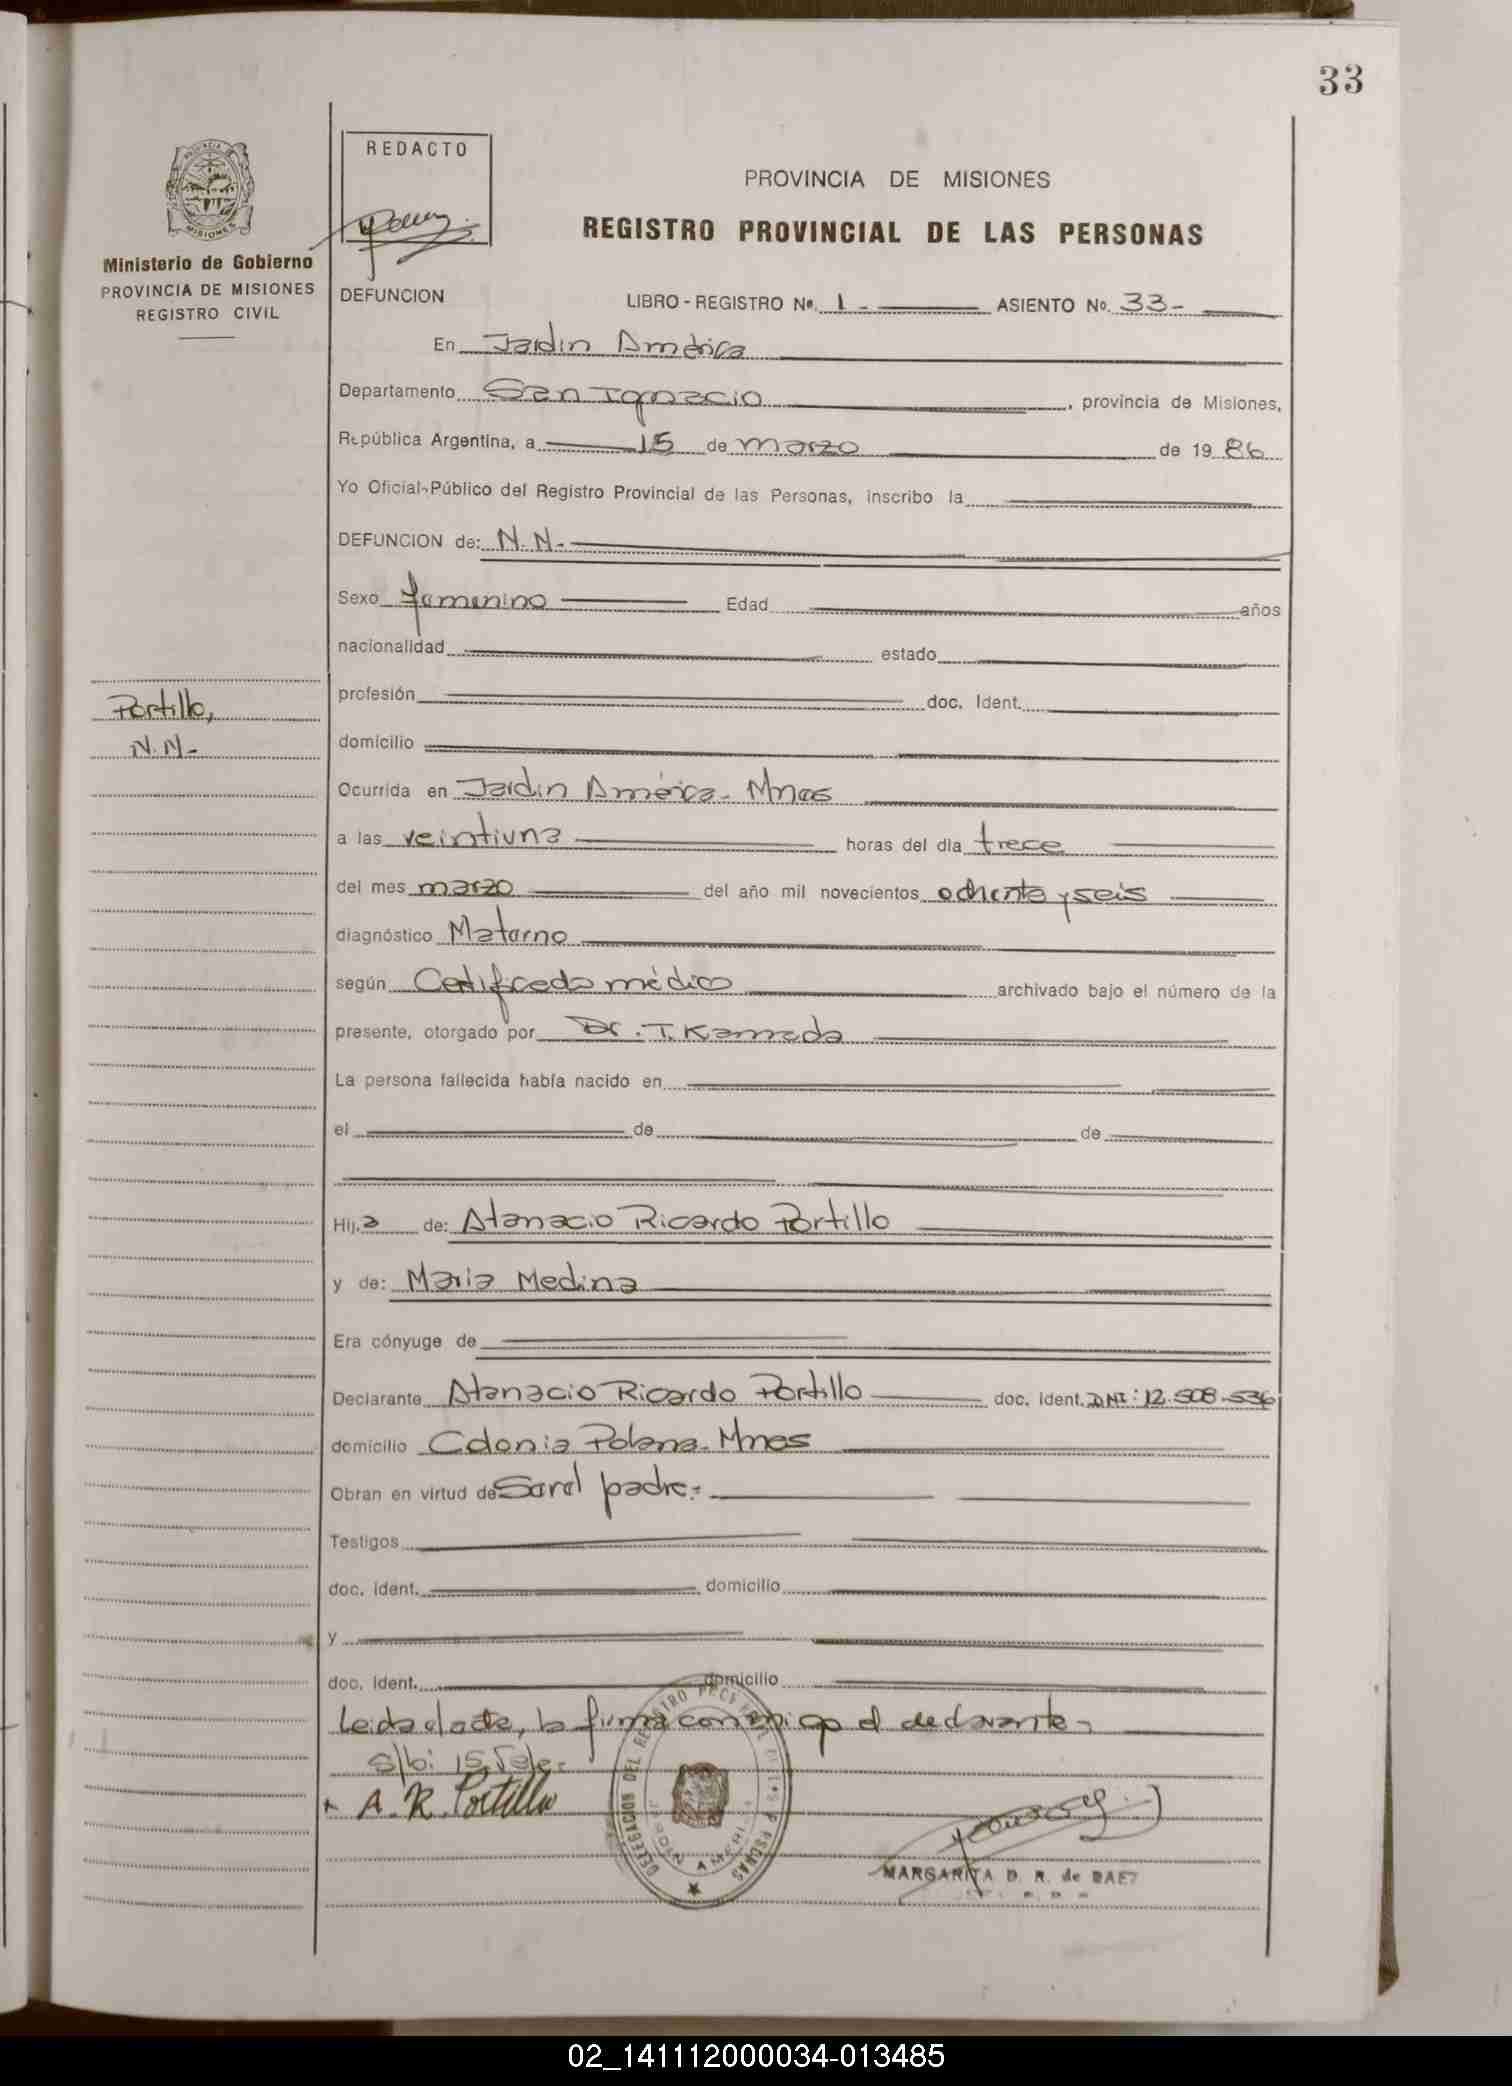 33
REDACTO
PROVINCIA DE MISIONES
REGISTRO PROVINCIAL DE LAS PERSONAS
MISIONES
Ministerio de Gobierno
PROVINCIA DE MISIONES
REGISTRO CIVIL
DEFUNCION LIBRO - REGISTRO Nº. 1 - ASIENTO No. 33 -
En Jardin América
Departamento San Ignacio, provincia de Misiones,
República Argentina, a 15 de marzo de 19 86
Yo Oficial-Público del Registro Provincial de las Personas, inscribo la
DEFUNCION de: N. N. -
Sexo femenino Edad años
nacionalidad estado
profesión doc. Ident.
Portillo,
N. N. -
domicilio
Ocurrida en Jardin América - Mnes
a las veintiuna horas del día trece
del mes marzo del año mil novecientos ochenta y seis
diagnóstico Materno
según Certificado médico archivado bajo el número de la
presente, otorgado por Dr. T. Kameda
La persona fallecida había nacido en
el de de
Hij.a de: Atanacio Ricardo Portillo
y de: Maria Medina
Era cónyuge de
Declarante Atanacio Ricardo Portillo doc. Ident. DNI: 12.508.536
domicilio Colonia Polana - Mnes
Obran en virtud de Ser el padre. -
Testigos
doc. Ident. domicilio
y
doc. Ident. domicilio
Leida el acta, la firma conmigo el declarante -
A. R. Portillo
DELEGACION DEL REGISTRO PROVINCIAL DE LAS PERSONAS
JARDIN AMERICA
MARGARITA D. R. de
02_141112000034-013485